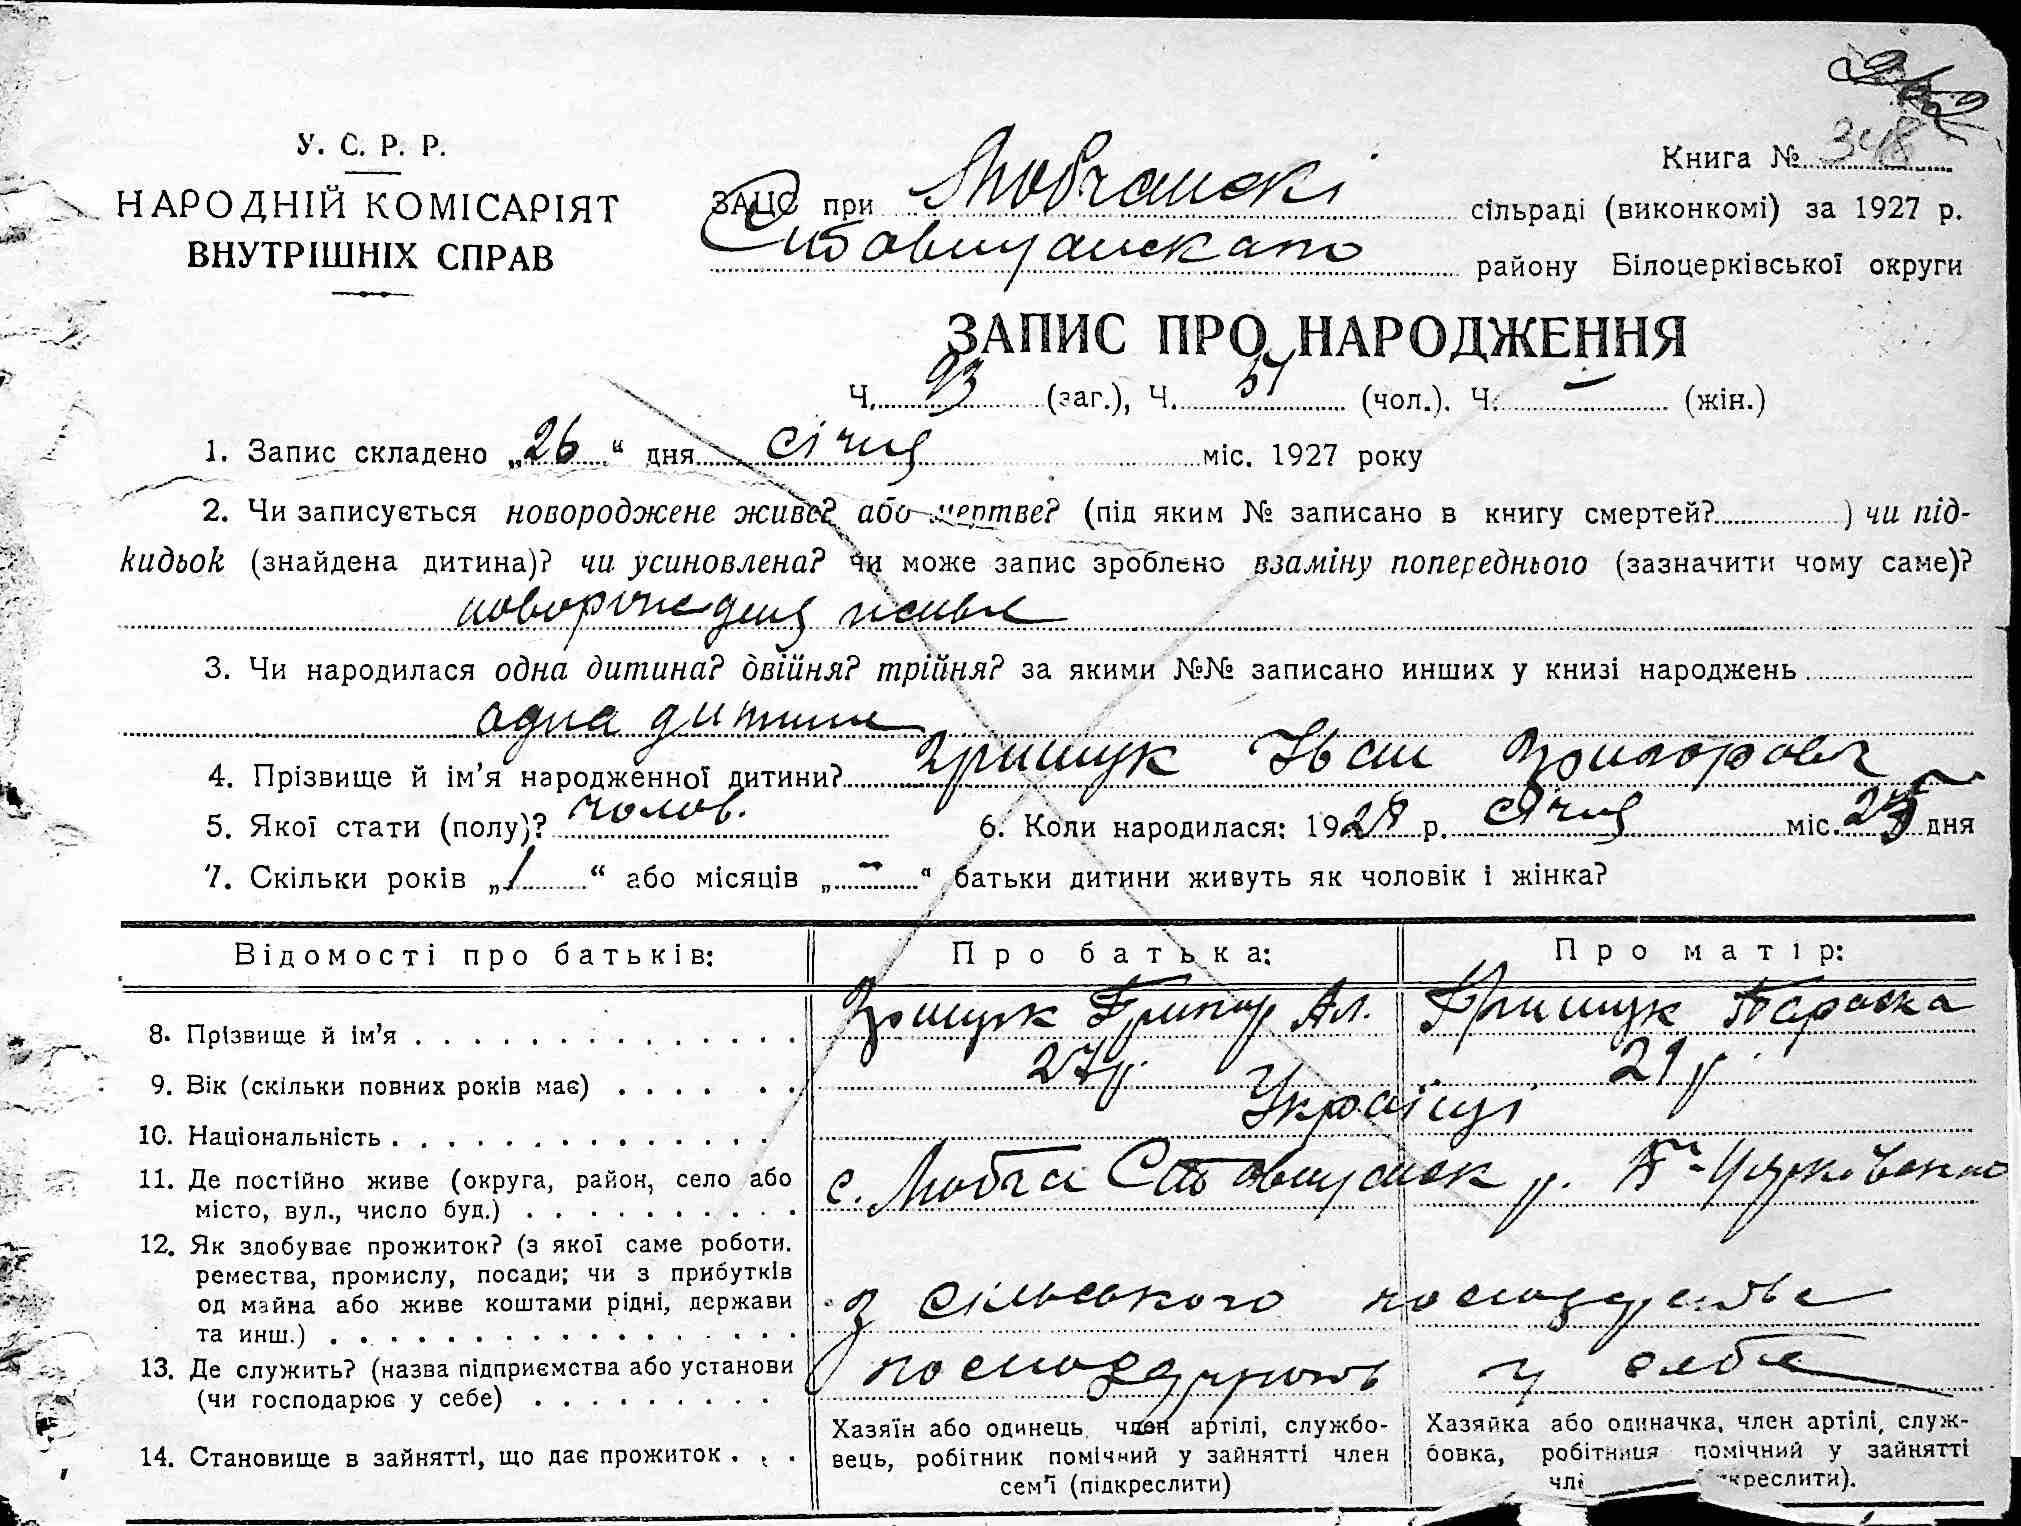 У. С. Р. Р.
НАРОДНІЙ КОМІСАРІЯТ
ВНУТРІШНІХ СПРАВ
Книга № 348
ЗАЦС при Любчанскі сільраді (виконкомі) за 1927 р.
Ставищанского району Білоцерківської округи
ЗАПИС ПРО НАРОДЖЕННЯ
Ч. 93 (заг.), Ч. 51 (чол.). Ч. — (жін.)
1. Запис складено „26“ дня січня міс. 1927 року
2. Чи записується новороджене живе? або мертве? (під яким № записано в книгу смертей? ) чи під-
кидьок (знайдена дитина)? чи усиновлена? чи може запис зроблено взаміну попереднього (зазначити чому саме)?
живе
3. Чи народилася одна дитина? двійня? трійня? за якими №№ записано инших у книзі народжень
одна дитина
4. Прізвище й ім’я народженної дитини? Грищук Іван
5. Якої стати (полу)? чолов. 6. Коли народилася: 19 р. січня міс. 25 дня
7. Скільки років „1“ або місяців „—“ батьки дитини живуть як чоловік і жінка?
Відомості про батьків: Про батька: Про матір:
8. Прізвище й ім’я Грищук Григор Ал. Грищук Параска
9. Вік (скільки повних років має) 27 р. 21 р.
10. Національність Українці
11. Де постійно живе (округа, район, село або
місто, вул., число буд.) с. Любча Ставищанск р. Б-Церковскої
12. Як здобуває прожиток? (з якої саме роботи.
ремества, промислу, посади; чи з прибутків
од майна або живе коштами рідні, держави
та инш.) з сільського господарства
13. Де служить? (назва підприємства або установи
(чи господарює у себе) господарують у себе
14. Становище в зайнятті, що дає прожиток
Хазяїн або одинець, член артілі, службо-
вець, робітник помічний у зайнятті член
сем’ї (підкреслити)
Хазяйка або одиначка, член артілі, служ-
бовка, робітниця помічний у зайнятті
чле креслити).